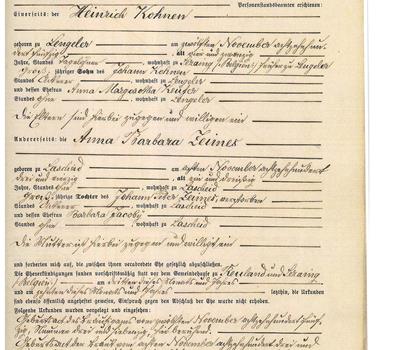 Personenstandsbeamten erschienen:
Einerseits: der Heinrich Kohnen
geboren zu Lengeler am zwölften November achtzehnhun-
dert fünfzig, alt vier und zwanzig
Jahre, Standes Tagelöhner, wohnhaft zu Seraing (Belgien) früher zu Lengeler
groß-jähriger Sohn des Johann Kohnen
Standes Ackerer, wohnhaft zu Lengeler
und dessen Ehefrau Anna Margaretha
Standes ohne, wohnhaft zu Lengeler
die Eltern sind hierbei zugegen und willigen ein
Andererseits: die Anna Barbara Zeimes
geboren zu Lascheid am achten November achtzehnhundert
drei und vierzig, alt ein und dreißig
Jahre, Standes ohne, wohnhaft zu Lascheid
groß-jährige Tochter des Johann Peter Zeimes, verstorben
Standes Ackerer, wohnhaft zu Lascheid
und dessen Ehefrau Barbara Jacoby
Standes ohne, wohnhaft zu Lascheid
die Mutter ist hierbei zugegen und willigt ein
und forderten mich auf, die zwischen ihnen verabredete Ehe gesetzlich abzuschließen.
Die Eheverkündigungen fanden vorschriftsmäßig statt vor dem Gemeindehause zu Reuland und Seraing
(Belgien) am dritten dieses Monats und Jahres
und am zehnten dieses Monats und Jahres letzthin, die Urkunden
sind ebenso öffentlich angeheftet gewesen, Einspruch gegen den Abschluß der Ehe wurde nicht erhoben.
Folgende Urkunden wurden vorgelegt und eingesehen:
Geburtsact des Bräutigams vom zwölften November achtzehnhundert fünf-
zig, Nummer drei und siebenzig, hier beruhend.
Geburtsact der Braut vom achten November achtzehnhundert drei und